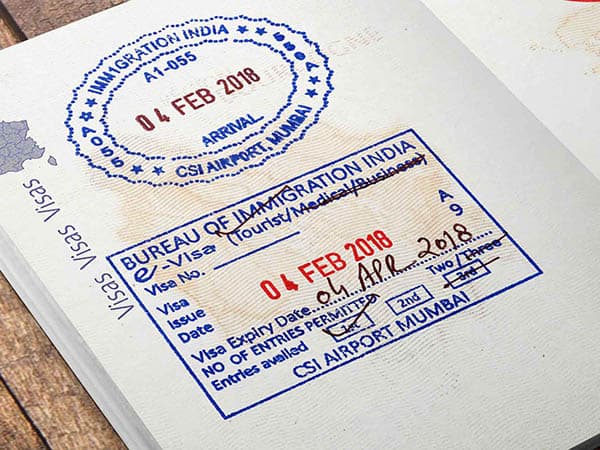 IMMIGRATION INDIA
A1-055
5507
5507
04 FEB 2018
ARRIVAL
CSI AIRPORT, MUMBAI
Visas Visas Visas
BUREAU OF IMMIGRATION INDIA
e-Visa (Tourist/Medical/Business)
Visa No.
A
9
Visa
Issue
Date
04 FEB 2018
Visa Expiry Date 04 APR 2018
NO OF ENTRIES PERMITTED Two/Three
Entries availed 1st 2nd 3rd
CSI AIRPORT MUMBAI